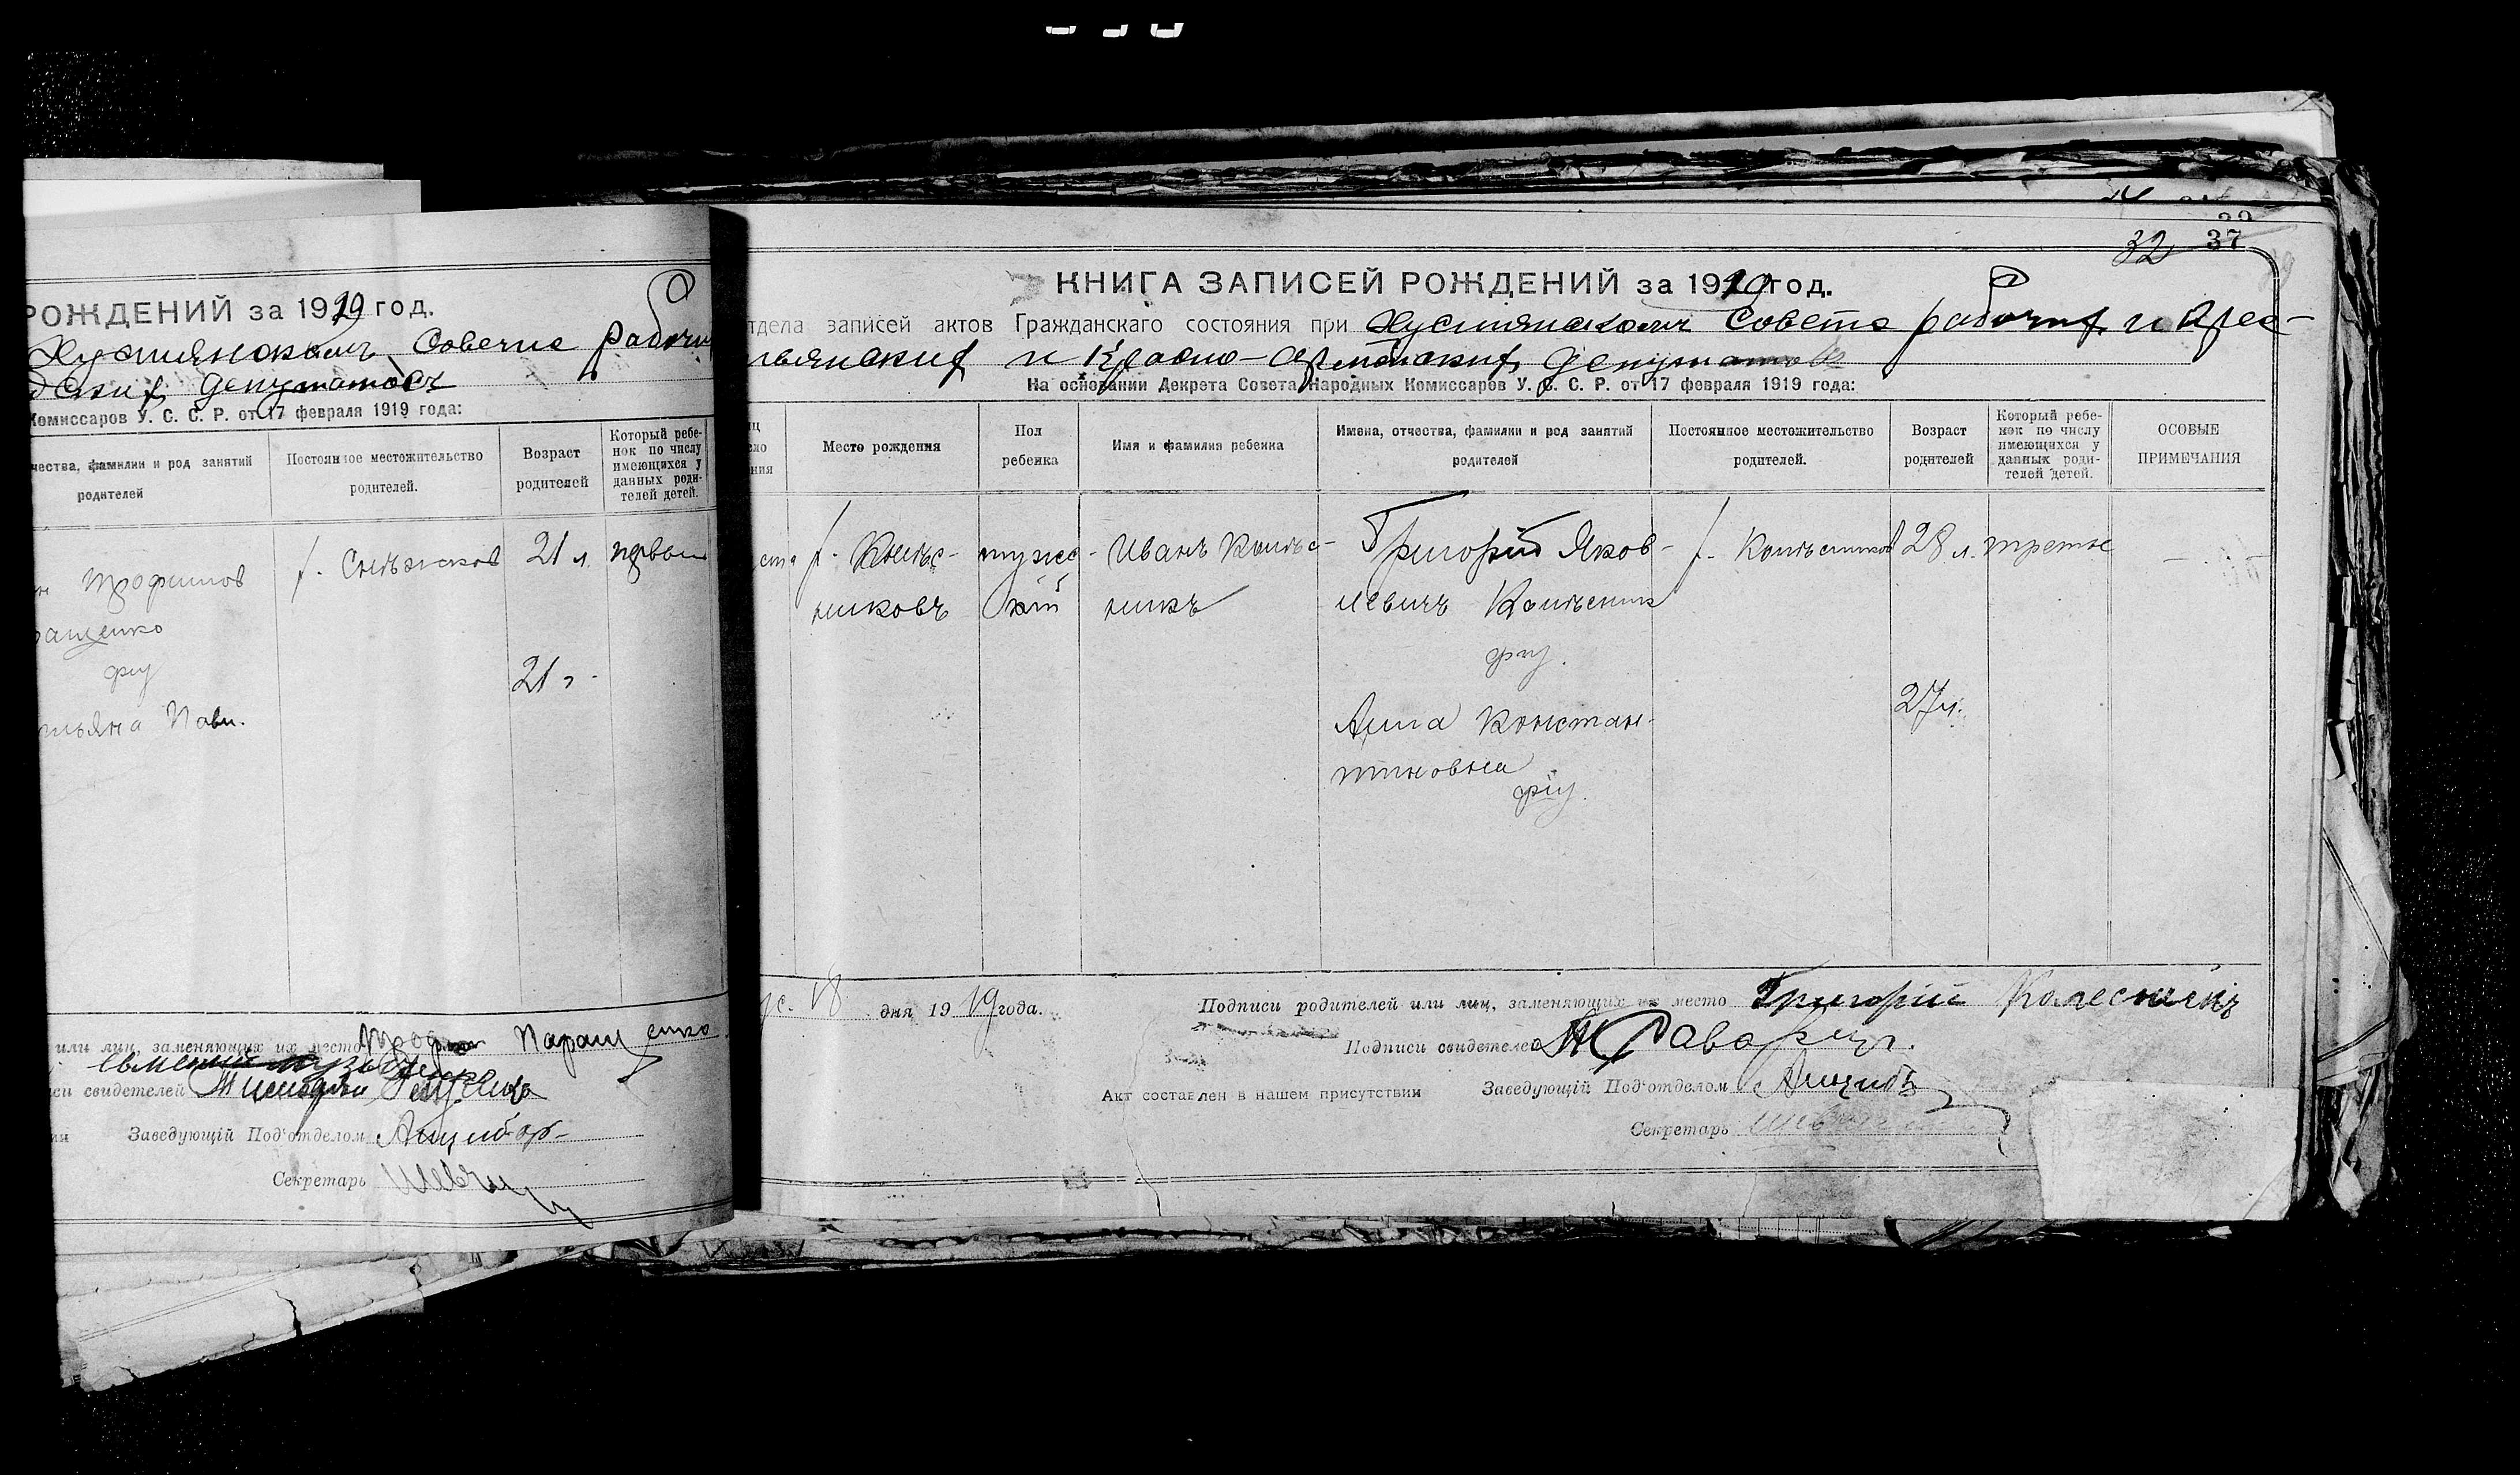 РОЖДЕНИЙ за 1919 год.
Хустянскомъ Совете рабочи
депутатовъ
Комиссаров У. С. С. Р. от 17 февраля 1919 года:
чества, фамилии и род занятий родителей
Постоянное местожительство родителей.
Возраст родителей
Который ребе-
нок по числу
имеющихся у
данных роди-
телей детей.
Трофимов
х. Снѣжков
21 л.
первый
ращенко
21 г.
тьяна Павл.
или лиц, заменяющих их место Трофим Паращенко
свидетелей
Заведующій Под'отделом
Секретарь
32 37
КНИГА ЗАПИСЕЙ РОЖДЕНИЙ за 1919 год.
тдела записей актов Гражданскаго состояния при Хустянскомъ Совета рабочих и Крес-
тьянских и Красно-армейских депутатов
На основании Декрета Совета Народных Комиссаров У. С. С. Р. от 17 февраля 1919 года:
Место рождения
Пол ребенка
Имя и фамилия ребенка
Имена, отчества, фамилии и род занятий родителей
Постоянное местожительство родителей.
Возраст родителей
Который ребе-
нок по числу
имеющихся у
данных роди-
телей детей.
ОСОБЫЕ ПРИМЕЧАНИЯ
мужс-
кій
Иванъ Колѣс-
никъ
Григорій Яков-
левичъ Колѣсник
х. Колѣсников
28 л.
третье
никовъ
Анна Констан-
тиновна
27 л.
18 дня 1919 года.
Подписи родителей или лиц, заменяющих их место Григорій Калесникъ
Подписи свидетелей
Акт составлен в нашем присутствии
Заведующій Под'отделом
Секретарь